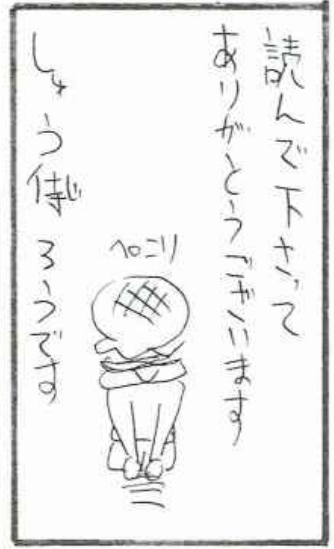 読んで下さって
ありがとうございます
ペコリ
しゅう侍ろうです
じ